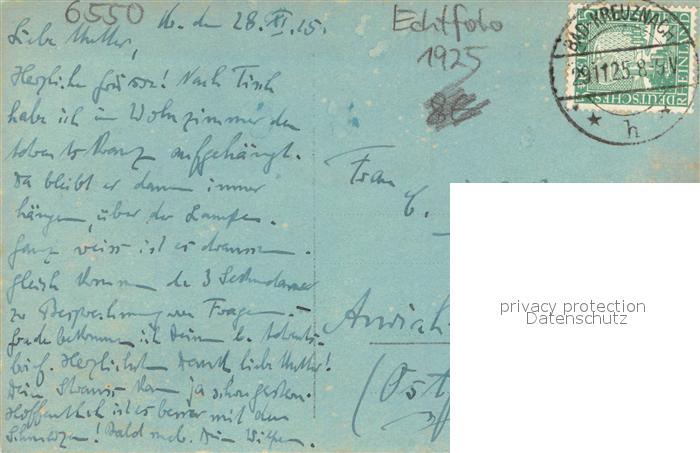 6550
Kr. den 28. XI. 25.
Echtfoto
1925
8€
BAD KREUZNACH
29.11.25. 8-9 V.
h
DEUTSCHES REICH
Liebe Mutter,
Herzliche Grüsse! Nach Tisch
habe ich im Wohnzimmer den
Kranz aufgehängt.
Da bleibt er dann immer
hängen, über der Lampe.
Ganz weiss ist es draussen.
Gleich kommen die 3 Sekundaner
zur Besprechung von Fragen.
Gerade bekomme ich Deinen l.
brief. Herzlichen Dank liebe Mutter!
Dein Strauss kam ja schon gestern.
Hoffentlich ist es besser mit den
Schmerzen! Bald mehr. Dein
Frau
E.
(Ost
privacy protection
Datenschutz